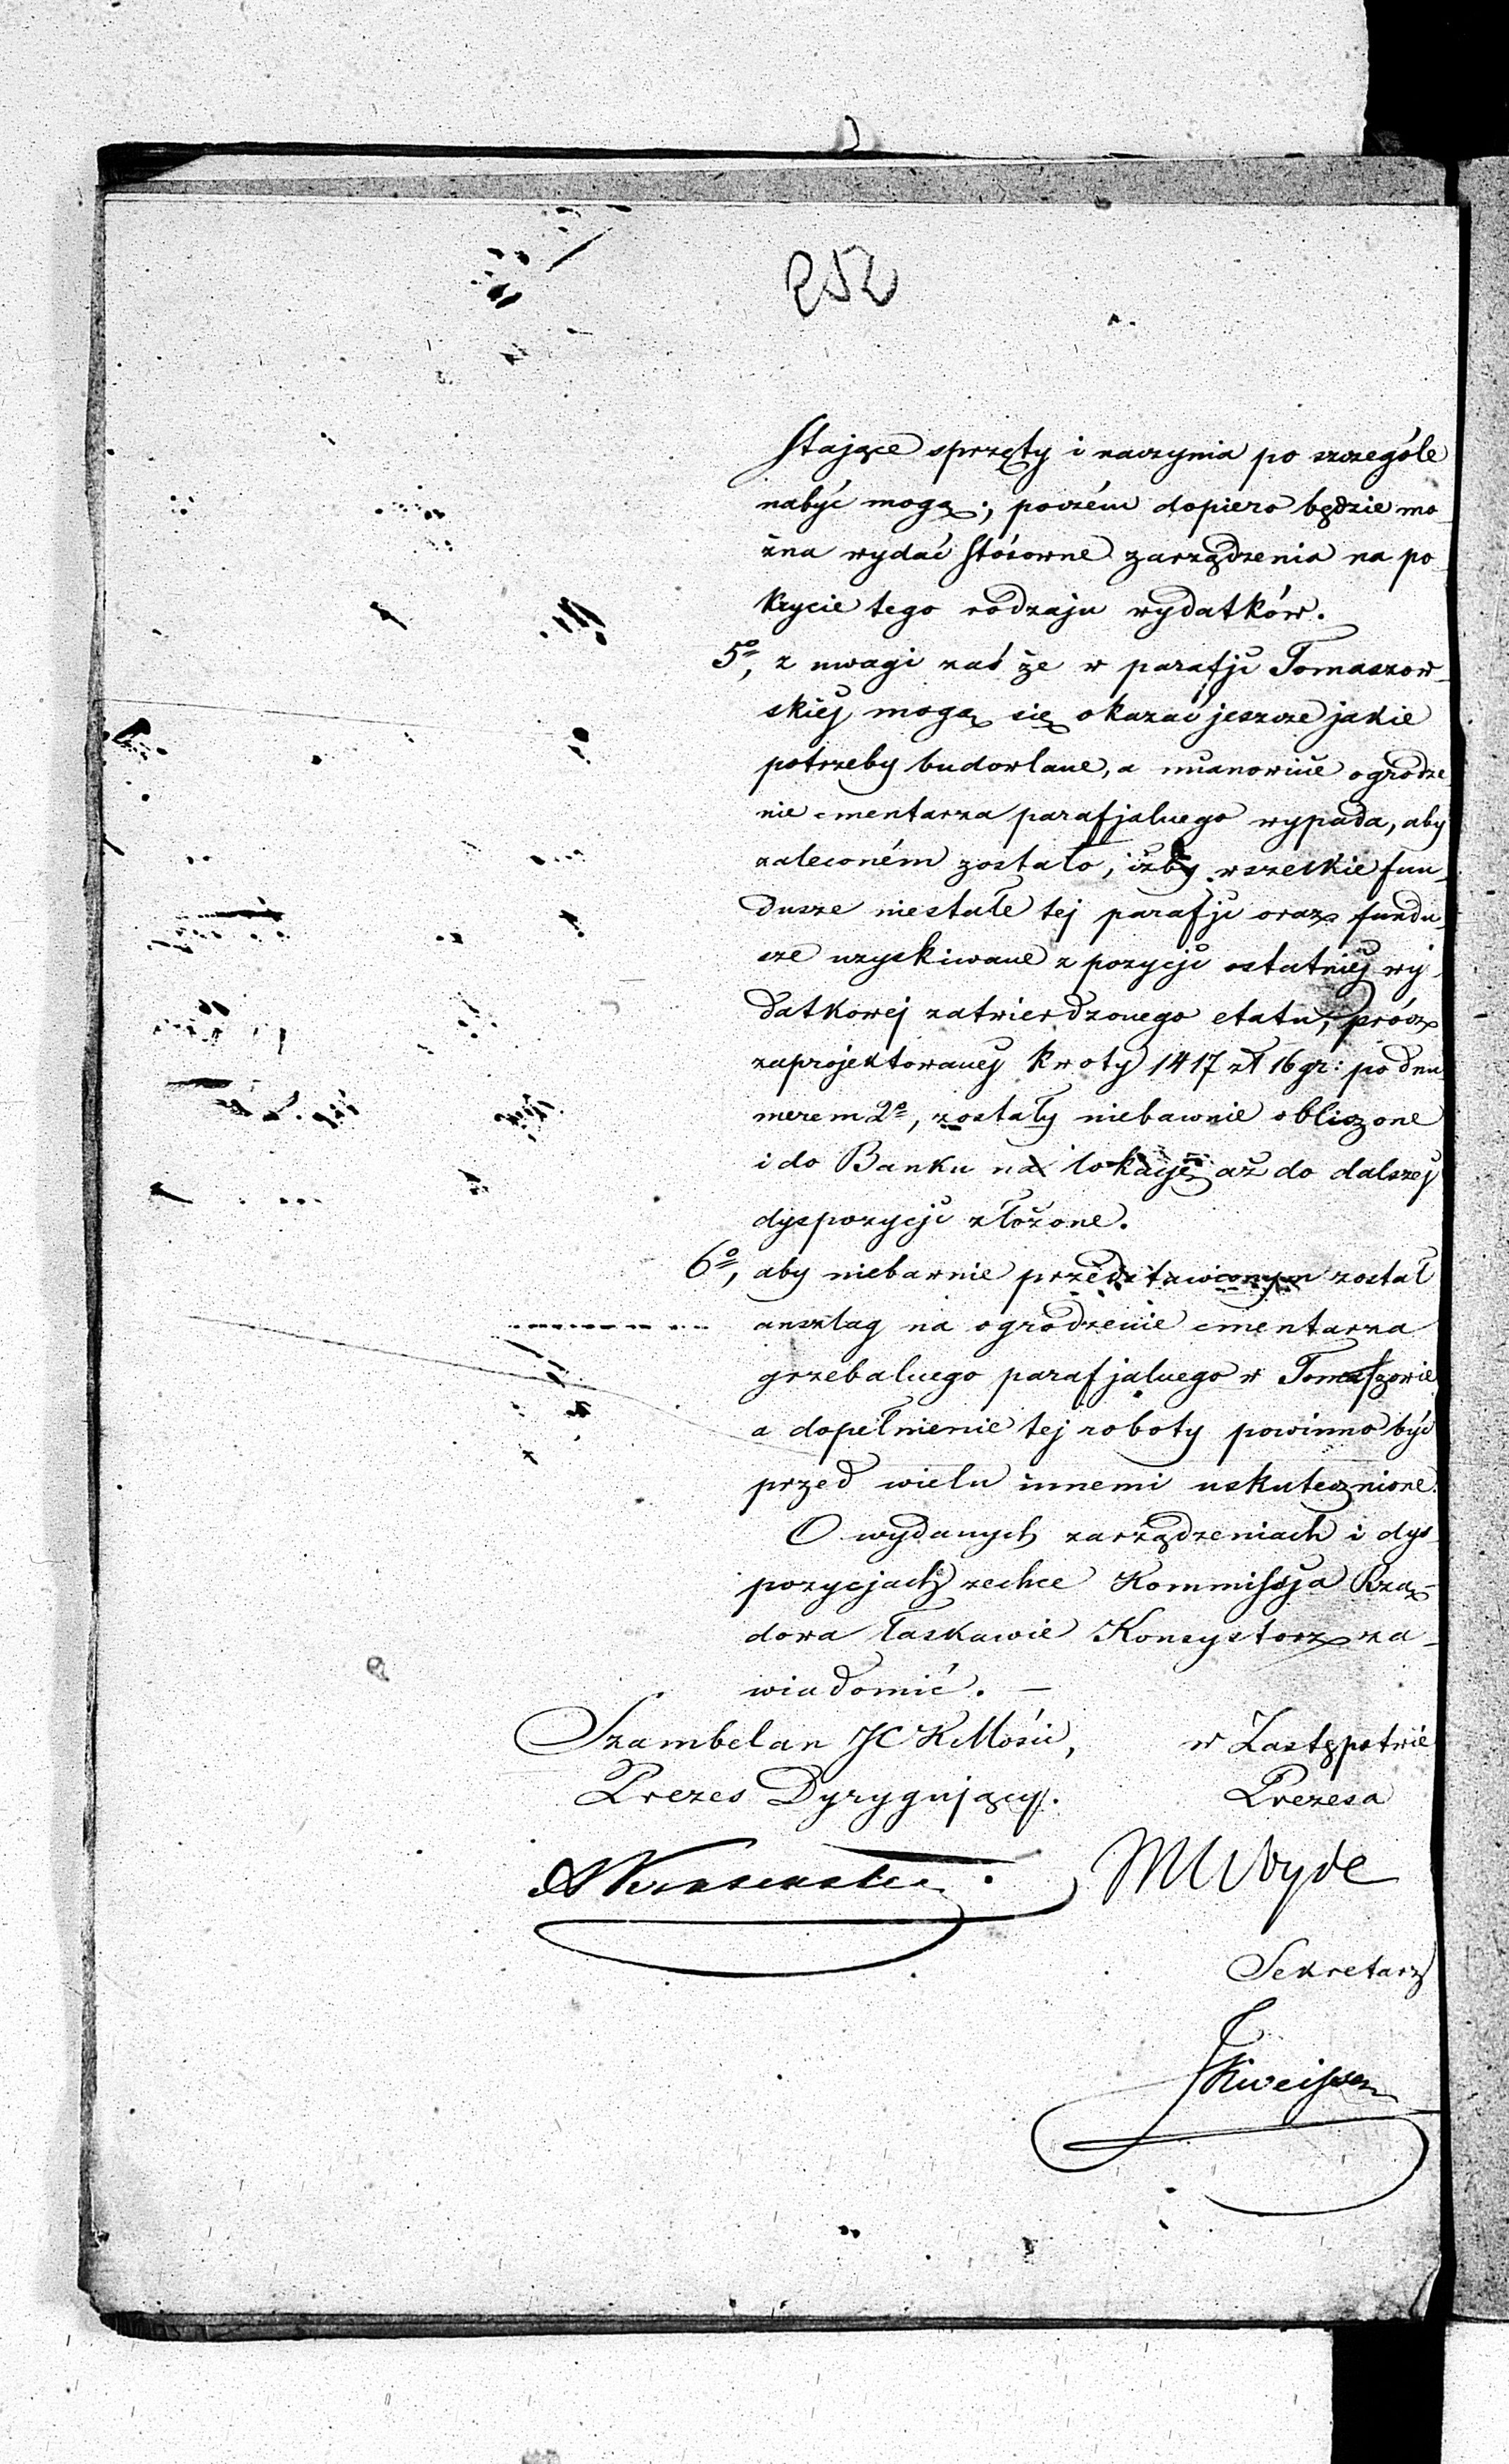 252
stające sprzęty i naczynia po szczególe
nabyć mogą; poczém dopiero będzie mo
żna wydać stósowne zarządzenia na po
krycie tego rodzaju wydatków.
5o, z uwagi zaś że w parafji Tomaszow
skiej mogą się okazać jeszcze jakie
potrzeby budowlane, a mianowicie ogrodze
nie cmentarza parafjalnego wypada, aby
zaleconém zostało, iżby wszelkie fun
dusze niestałe tej parafji oraz fundu
sze uzyskiwane z pozycji ostatniej wy
datkowej zatwierdzonego etatu, prócz
zaprojektowanej kwoty 1417 zł 16 gr: pod nu
merem 2o, zostały niebawnie obliczone
i do Banku na lokację aż do dalszej
dyspozycji złożone.
6o, aby niebawnie przedstawionym został
anszlag na ogrodzenie cmentarza
grzebalnego parafjalnego w Tomaszowie
a dopełnienie tej roboty powinno być
przed wielu innemi uskutecznione.
O wydanych zarządzeniach i dys
pozycjach zechce Kommissja Rzą-
dowa łaskawie Konsystorz za
wiadomić. —
Szambelan JCK Mości, w Zastępstwie
Prezes Dyrygujący. Prezesa
Sekretarz